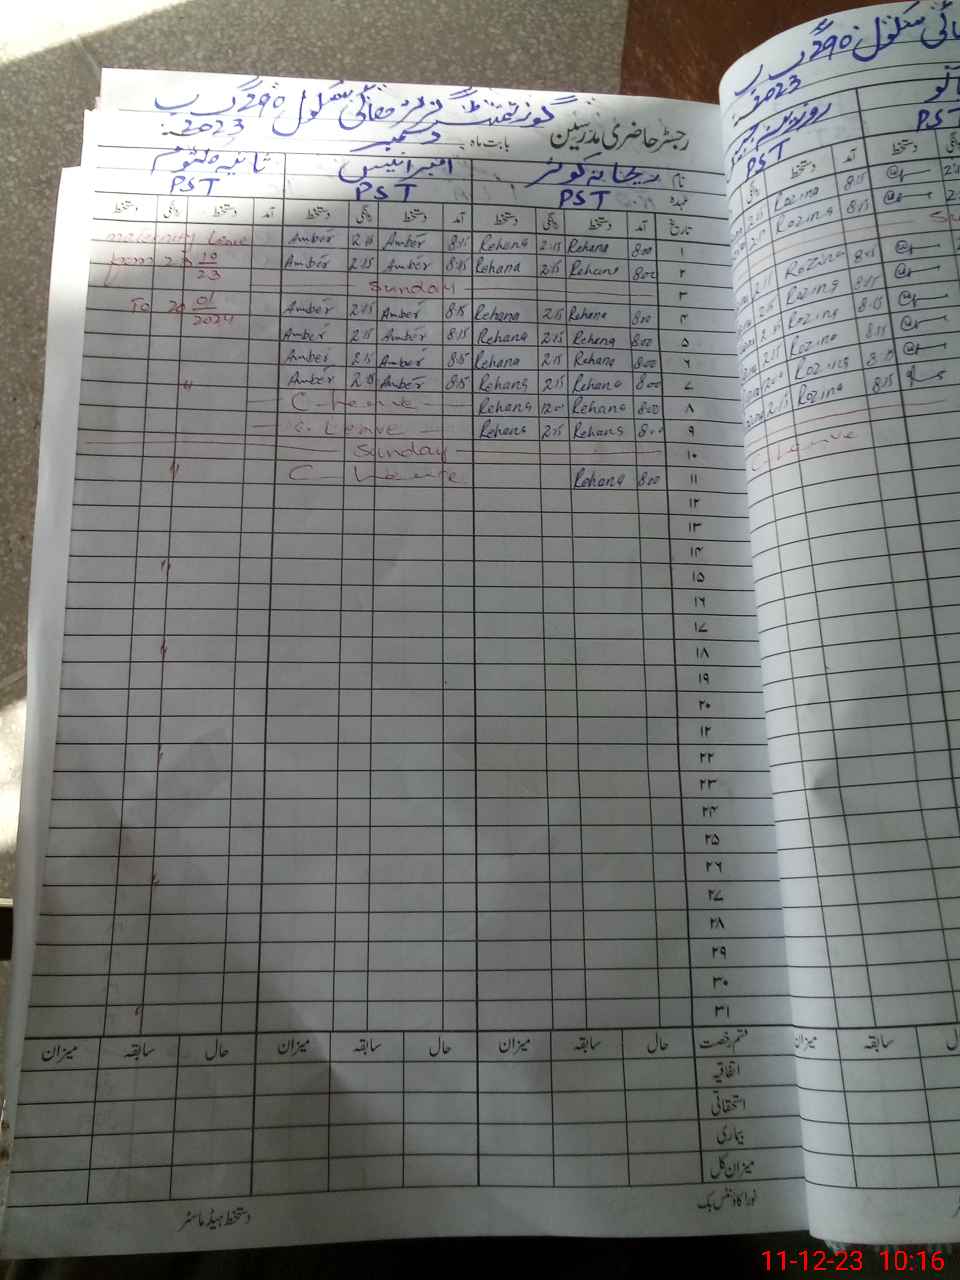 گورنمنٹ گرلز ہائی سکول 295 گ ب
رجسٹر حاضری مدرسین بابت ماہ دسمبر 2023
نام ریحانہ کوثر امبر انیس ثانیہ کلثوم
عہدہ PST PST PST
تاریخ آمد دستخط روانگی دستخط آمد دستخط روانگی دستخط آمد دستخط روانگی دستخط
۱ 8:00 Rehana 2:15 Rehana 8:15 Amber 2:15 Amber maternity leave
۲ 8:00 Rehana 2:15 Rehana 8:15 Amber 2:15 Amber from 10/23
۳ Sunday
۴ 8:00 Rehana 2:15 Rehana 8:15 Amber 2:15 Amber To 20 01/2024
۵ 8:00 Rehana 2:15 Rehana 8:15 Amber 2:15 Amber
۶ 8:00 Rehana 2:15 Rehana 8:15 Amber 2:15 Amber
۷ 8:00 Rehana 2:15 Rehana 8:15 Amber 2:15 Amber "
۸ 8:00 Rehana 12:00 Rehana C-Leave
۹ 8:00 Rehana 2:15 Rehana C. Leave
۱۰ Sunday
۱۱ 8:00 Rehana C-Leave "
۱۲
۱۳
۱۴
۱۵ "
۱۶
۱۷
۱۸ "
۱۹
۲۰
۱۲
۲۲ "
۲۳
۲۴
۲۵
۲۶ "
۲۷
۲۸
۲۹
۳۰
۳۱ "
قسم رخصت حال سابقہ میزان حال سابقہ میزان حال سابقہ میزان
اتفاقیہ
استحقاقی
بیماری
میزان کل
نورا کاؤنٹس بک دستخط ہیڈ ماسٹر
295 گ ب
2023
PST
PST
دستخط آمد
@f 8:15 Rozina 2:15
@f 8:15 Rozina
@f 8:15 Rozina 2:15
@f 8:15 Rozina 2:15
@f 8:15 Rozina
@f 8:15 Rozina 2:15
8:10 Rozina 12:00
8:15 Rozina 2:15
C-Leave
سابقہ میزان
11-12-23 10:16